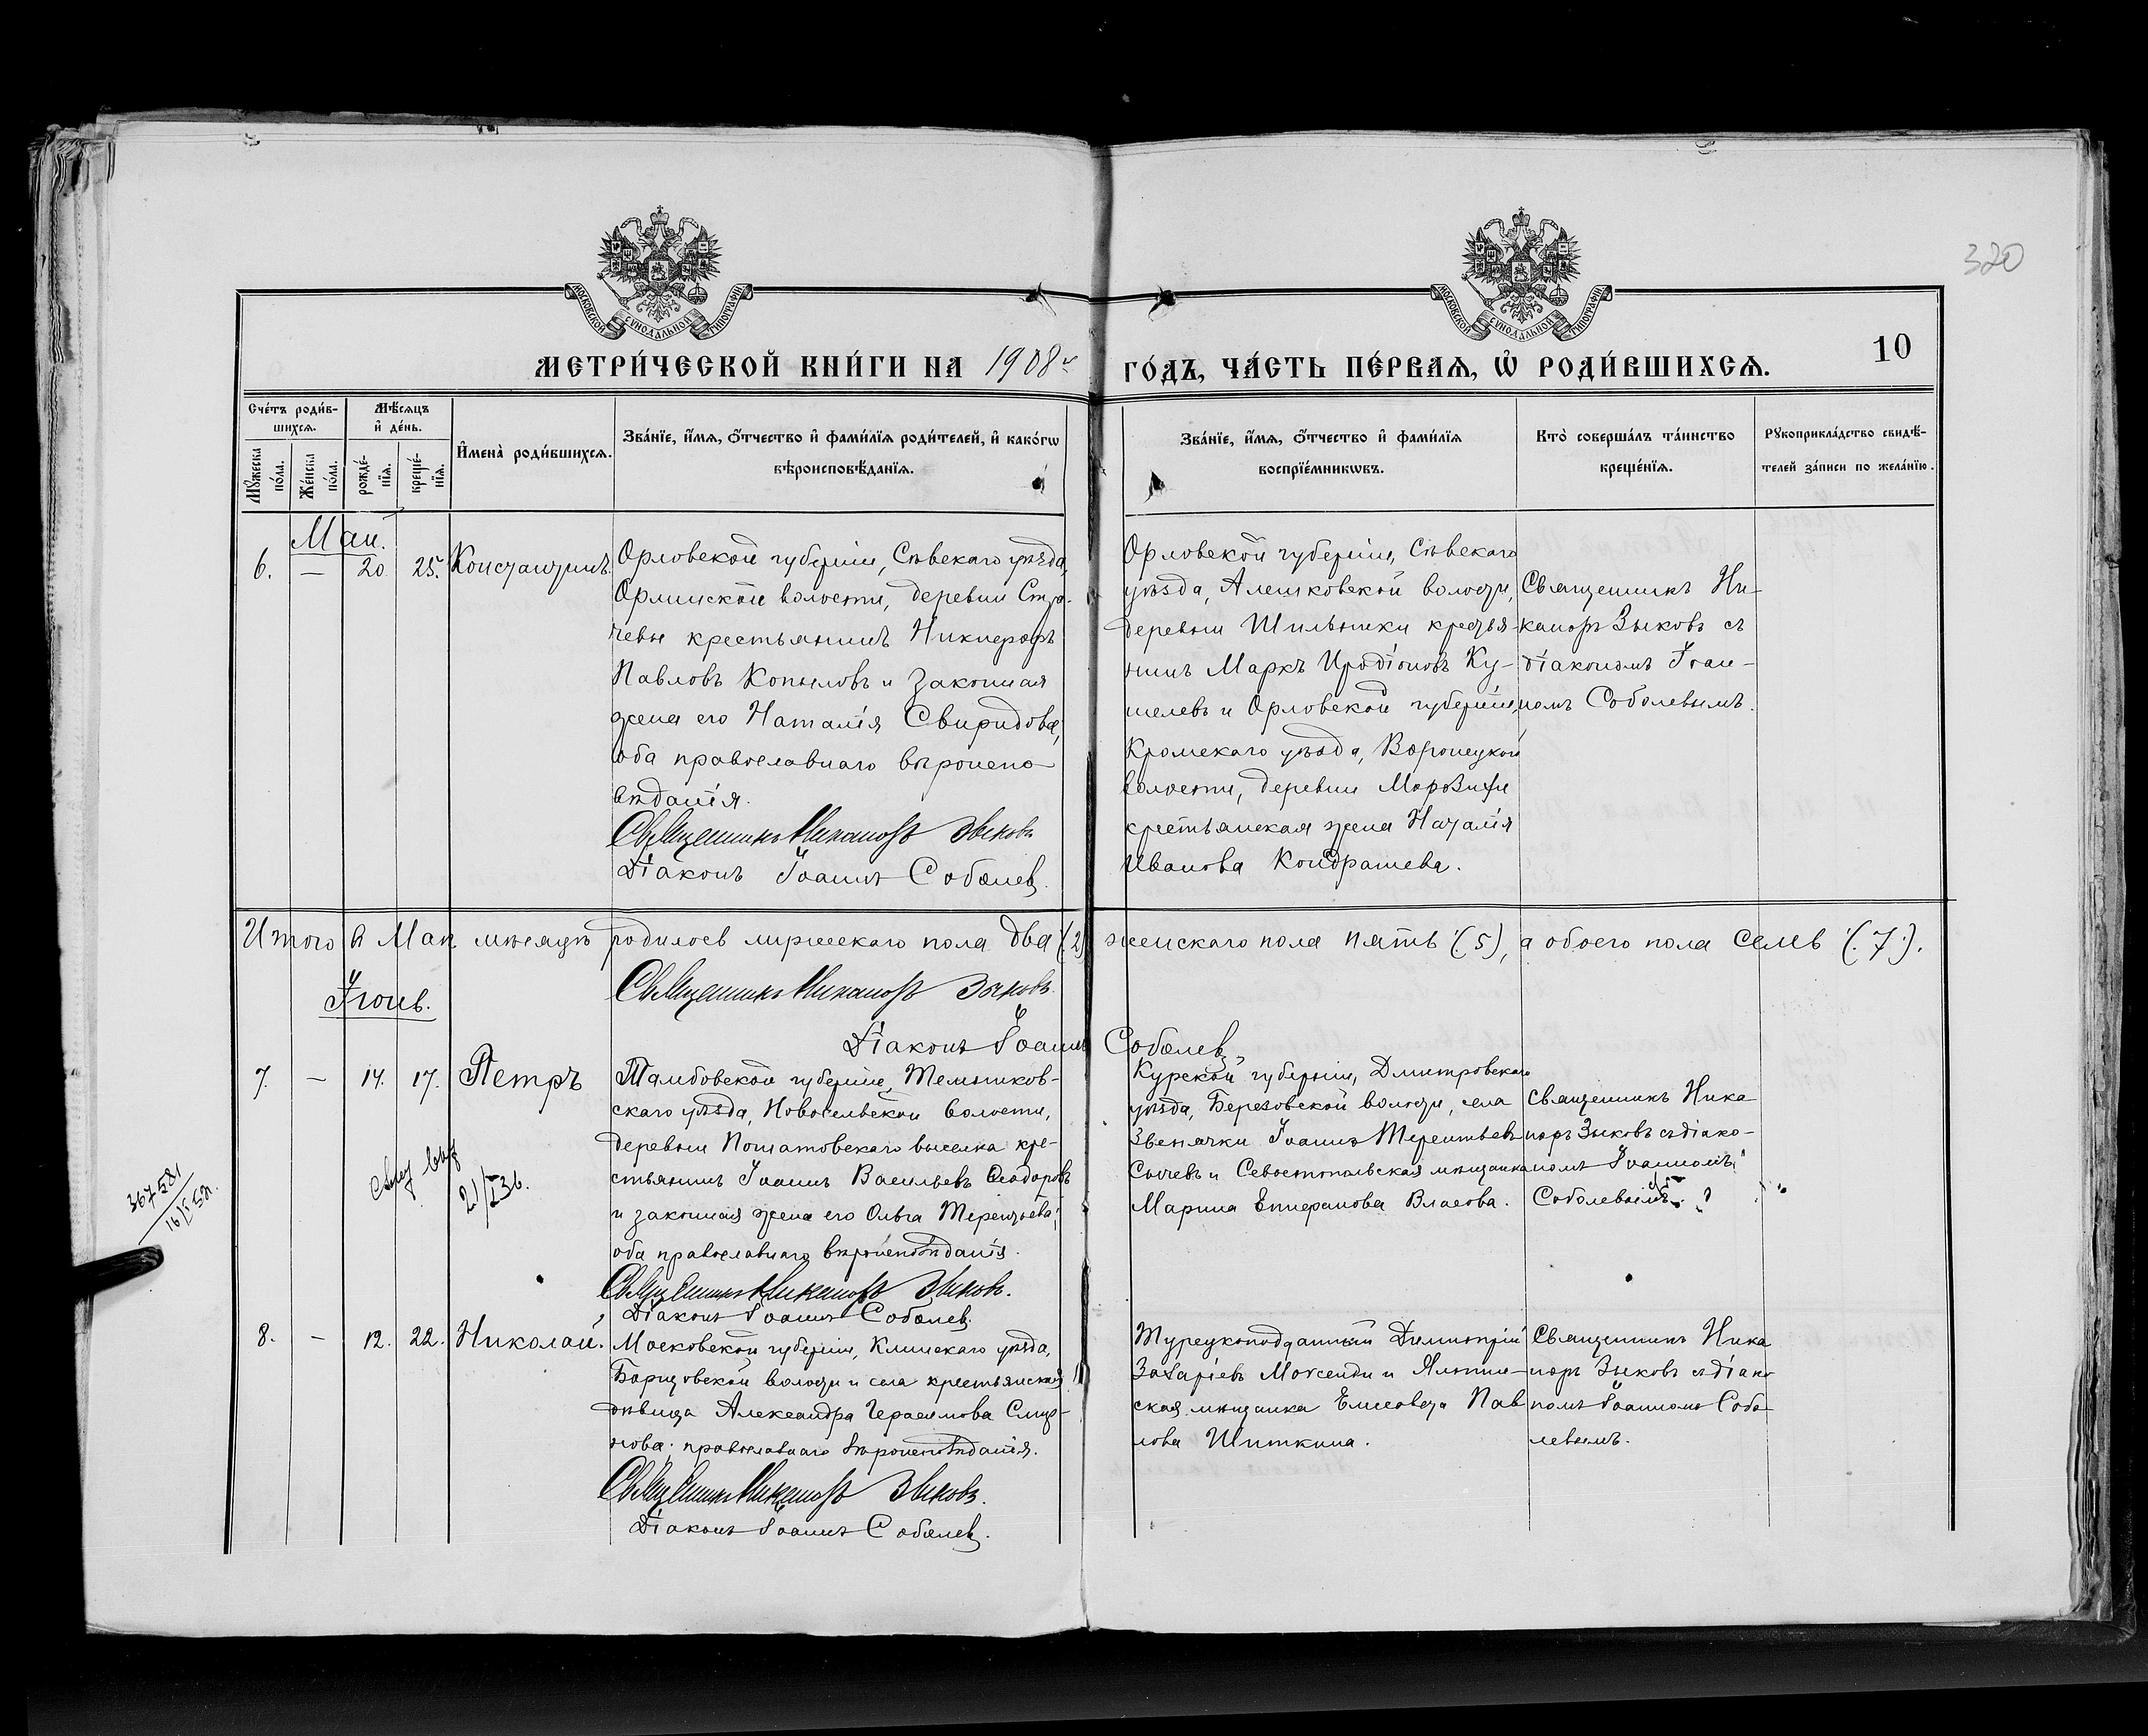 320
МОСКОВСКОЙ СѴНОДАЛЬНОЙ ТИПОГРАФІИ
МОСКОВСКОЙ СѴНОДАЛЬНОЙ ТИПОГРАФІИ
МЕТРИ́ЧЕСКОЙ КНИ́ГИ НА 1908й ГО́ДЪ, ЧА́СТЬ ПЕ́РВАѦ, Ѡ҆ РОДИ́ВШИХСѦ.
10
Сче́тъ роди́в-
шихсѧ.
Мꙋ́жеска по́ла.
Же́нска по́ла.
Мѣ́сѧцъ
и҆ де́нь.
рожде́-нїѧ.
креще́-нїѧ.
И҆мена̀ роди́вшихсѧ.
Зва́нїе, и҆́мѧ, ѻ҆́тчество и҆ фами́лїѧ роди́телей, и҆ како́гѡ
вѣроисповѣ́данїѧ.
Зва́нїе, и҆́мѧ, ѻ҆́тчество и҆ фами́лїѧ
воспрїе́мникѡвъ.
Кто̀ соверша́лъ та́инство
креще́нїѧ.
Рꙋкоприкла́дство свидѣ́-
телей за́писи по жела́нїю.
Май.
6. — 20. 25. Константинъ.
Орловской губерніи, Сѣвскаго уѣзда,
Орлинской волости, деревни
крестьянинъ Никифоръ
Павловъ Копыловъ и законная
жена его Наталія Свиридова,
оба православнаго вѣроиспо-
вѣданія.
Священникъ Никаноръ Зыковъ
Діаконъ Іоаннъ Соболевъ.
Орловской губерніи, Сѣвскаго
уѣзда, Алешковской волости,
деревни Шильники крестья-
нинъ Маркъ Иродіоновъ Ку-
шелевъ и Орловской губерніи,
Кромскаго уѣзда, Воронецкой
волости, деревни
крестьянская жена Наталія
Иванова Кондрашева.
Священникъ Ни-
каноръ Зыковъ съ
діакономъ Іоан-
номъ Соболевымъ.
Итого въ Маѣ мѣсяцѣ родилось мужескаго пола два (2) женскаго пола пять (5), а обоего пола семь (7).
Священникъ Никаноръ Зыковъ.
Діаконъ Іоаннъ Соболевъ
Іюнь.
7. — 14. 17. Петръ
Тамбовской губерніи, Темников-
скаго уѣзда, Новосельской волости,
деревни выселка кре-
стьянинъ Іоаннъ Васильевъ Ѳеодоровъ
и законная жена его Ольга Терентьева,
оба православнаго вѣроисповѣданія.
Священникъ Никаноръ Зыковъ.
Діаконъ Іоаннъ Соболевъ.
Курской губерніи, Дмитровскаго
уѣзда, Березовской волости, села
Звенячки Іоаннъ Терентьевъ
Сычевъ и Севастопольская мѣщанка
Марина Власова.
Священникъ Ника
норъ Зыковъ съ діако-
номъ Іоанномъ
Соболевымъ.
367581
16/5 58г.
21/I 36.
8. — 12. 22. Николай.
Московской губерніи, Клинскаго уѣзда,
Борщовской волости и села крестьянская
дѣвица Александра Герасимова Смир-
нова православнаго вѣроисповѣданія.
Священникъ Никаноръ Зыковъ.
Діаконъ Іоаннъ Соболевъ.
Турецкоподданный Димитрій
Захаріевъ и Ялтин-
ская мѣщанка Елисавета Пав
лова Шиткина.
Священникъ Ника
норъ Зыковъ съ діако
номъ Іоанномъ Собо-
левымъ.